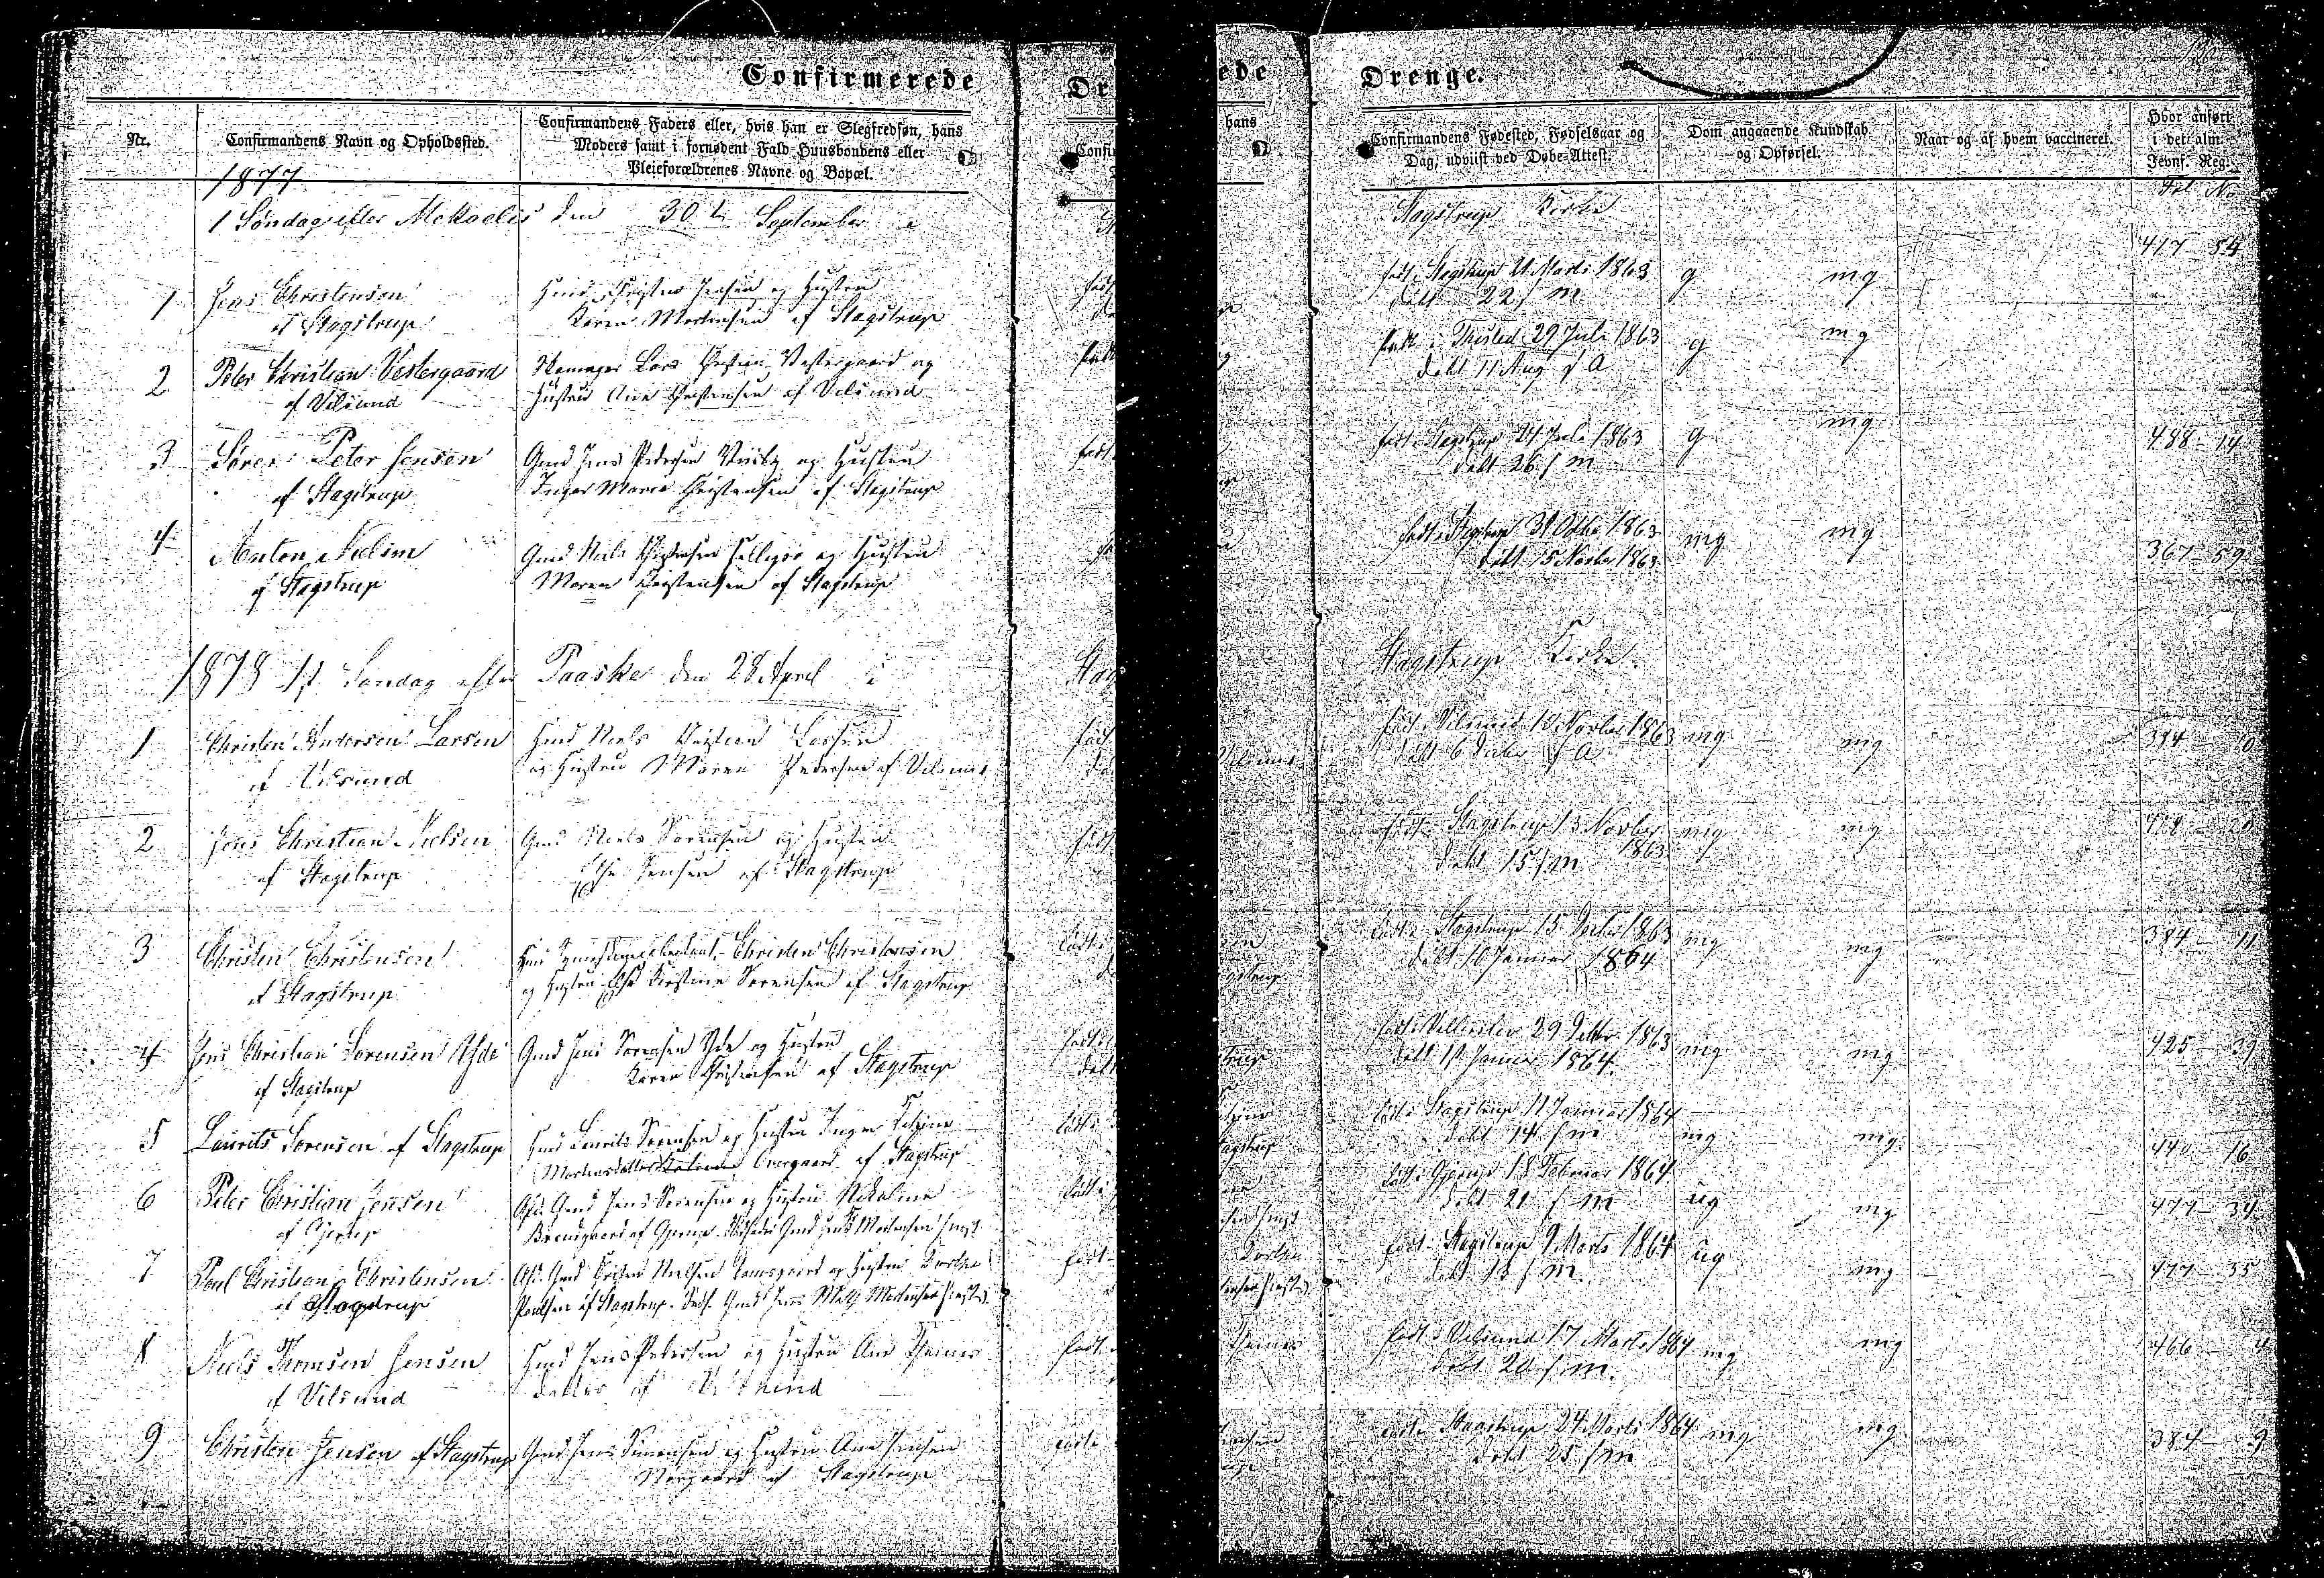 Confirmerede
Drenge.
Nr.
Confirmandens Navn og Opholdssted.
Confirmandens Faders eller, hvis han er Slegfredsøn, hans
Moders samt i fornødent Fald Huusbondens eller
Pleieforældrenes Navne og Bopæl.
Confirmandens Fødested, Fødselsaar og
Dag, udviist ved Døbe-Attest.
Dom angaaende Kundskab
og Opførsel.
Naar og af hvem vaccineret.
Hvor anført
i det alm.
Jevnf. Reg.
Fol No
1877
1 Søndag efter Mikaelis den 30 September i Stagstrup Kirke
1 Jens Christensen
af Stagstrup
Jensen og Hustru
Karen Mortensen af Stagstrup
født i Stagstrup 21 Marts 1863
døbt 22 s m
g mg
417 - 54
2 Peter Christian Vestergaard
af Vilsund
Lars Vestergaard og
Hustru Ane Christensen af Vilsund
født i Thisted 29 Juli 1863
døbt 11 Aug s A
g mg
3 Søren Peter Jensen
af Stagstrup
Gmd Jens Pedersen og Hustru
Inger Marie Christensen af Stagstrup
født i Stagstrup 24 Juli 1863
døbt 26 s m
g mg
488 - 14
4 Anton
af Stagstrup
Gmd Niels Christensen og Hustru
Maren Christensen af Stagstrup
født i Stagstrup 31 Octbr 1863
døbt 15 Novbr 1863
mg mg
367 - 59
1878 1st Søndag efter Paaske den 28 April i Stagstrup Kirke
1 Christen Andersen Larsen
af Vilsund
Hmd Niels Christian Larsen
og Hustru Maren Pedersen af Vilsund
født i Vilsund Novbr 1863
døbt 6 Decbr s A
mg mg
384 - 10
2 Jens Christian Nielsen
af Stagstrup
Gmd Niels Sørensen og Hustru
Else Jensen af Stagstrup
født i Stagstrup 13 Novbr
1863
døbt 15 s m
mg mg
418 - 20
3 Christen Christensen
af Stagstrup
Christen Christensen
og Hustru Else Kirstine Sørensen af Stagstrup
født i Stagstrup 15 Decbr 1863
døbt 10 Januar 1864
mg mg
384 - 11
4 Jens Christian Sørensen Yde
af Stagstrup
Gmd Jens Sørensen Yde og Hustru
Karen Christensen af Stagstrup
født i 29 Decbr 1863
døbt 1 Januar 1864
mg mg
425 - 39
5 Laurits Sørensen af Stagstrup
Hmd Laurits Sørensen og Hustru Inger
Mortensdatter Overgaard af Stagstrup
født i Stagstrup 11 Januar 1864
døbt 14 s m
mg mg
440 - 16
6 Peter Christian Jensen
af Gjerup
Gmd Jens Sørensen og Hustru Nikoline
af Gjerup. Gmd Mortensen
født i Gjerup 18 Februar 1864
døbt 21 s m
ug mg
477 - 34
7 Poul Christian Christensen
af Stagstrup
Gmd Nielsen og Hustru Dorthe
Poulsen af Stagstrup. Gmd Jens Mortensen
født i Stagstrup 9 Marts 1864
døbt 13 s m
ug mg
477 - 35
8 Niels Thomsen Jensen
af Vilsund
Hmd Jens Pedersen og Hustru Ane
datter af Vilsund
født i Vilsund 17 Marts 1864
døbt 20 s m
mg mg
466 - 4
9 Christen Jensen af Stagstrup
Gmd Jens Simonsen og Hustru Ane Jensen
Nørgaard af Stagstrup
født i Stagstrup 24 Marts 1864
døbt 25 s m
mg mg
384 - 9